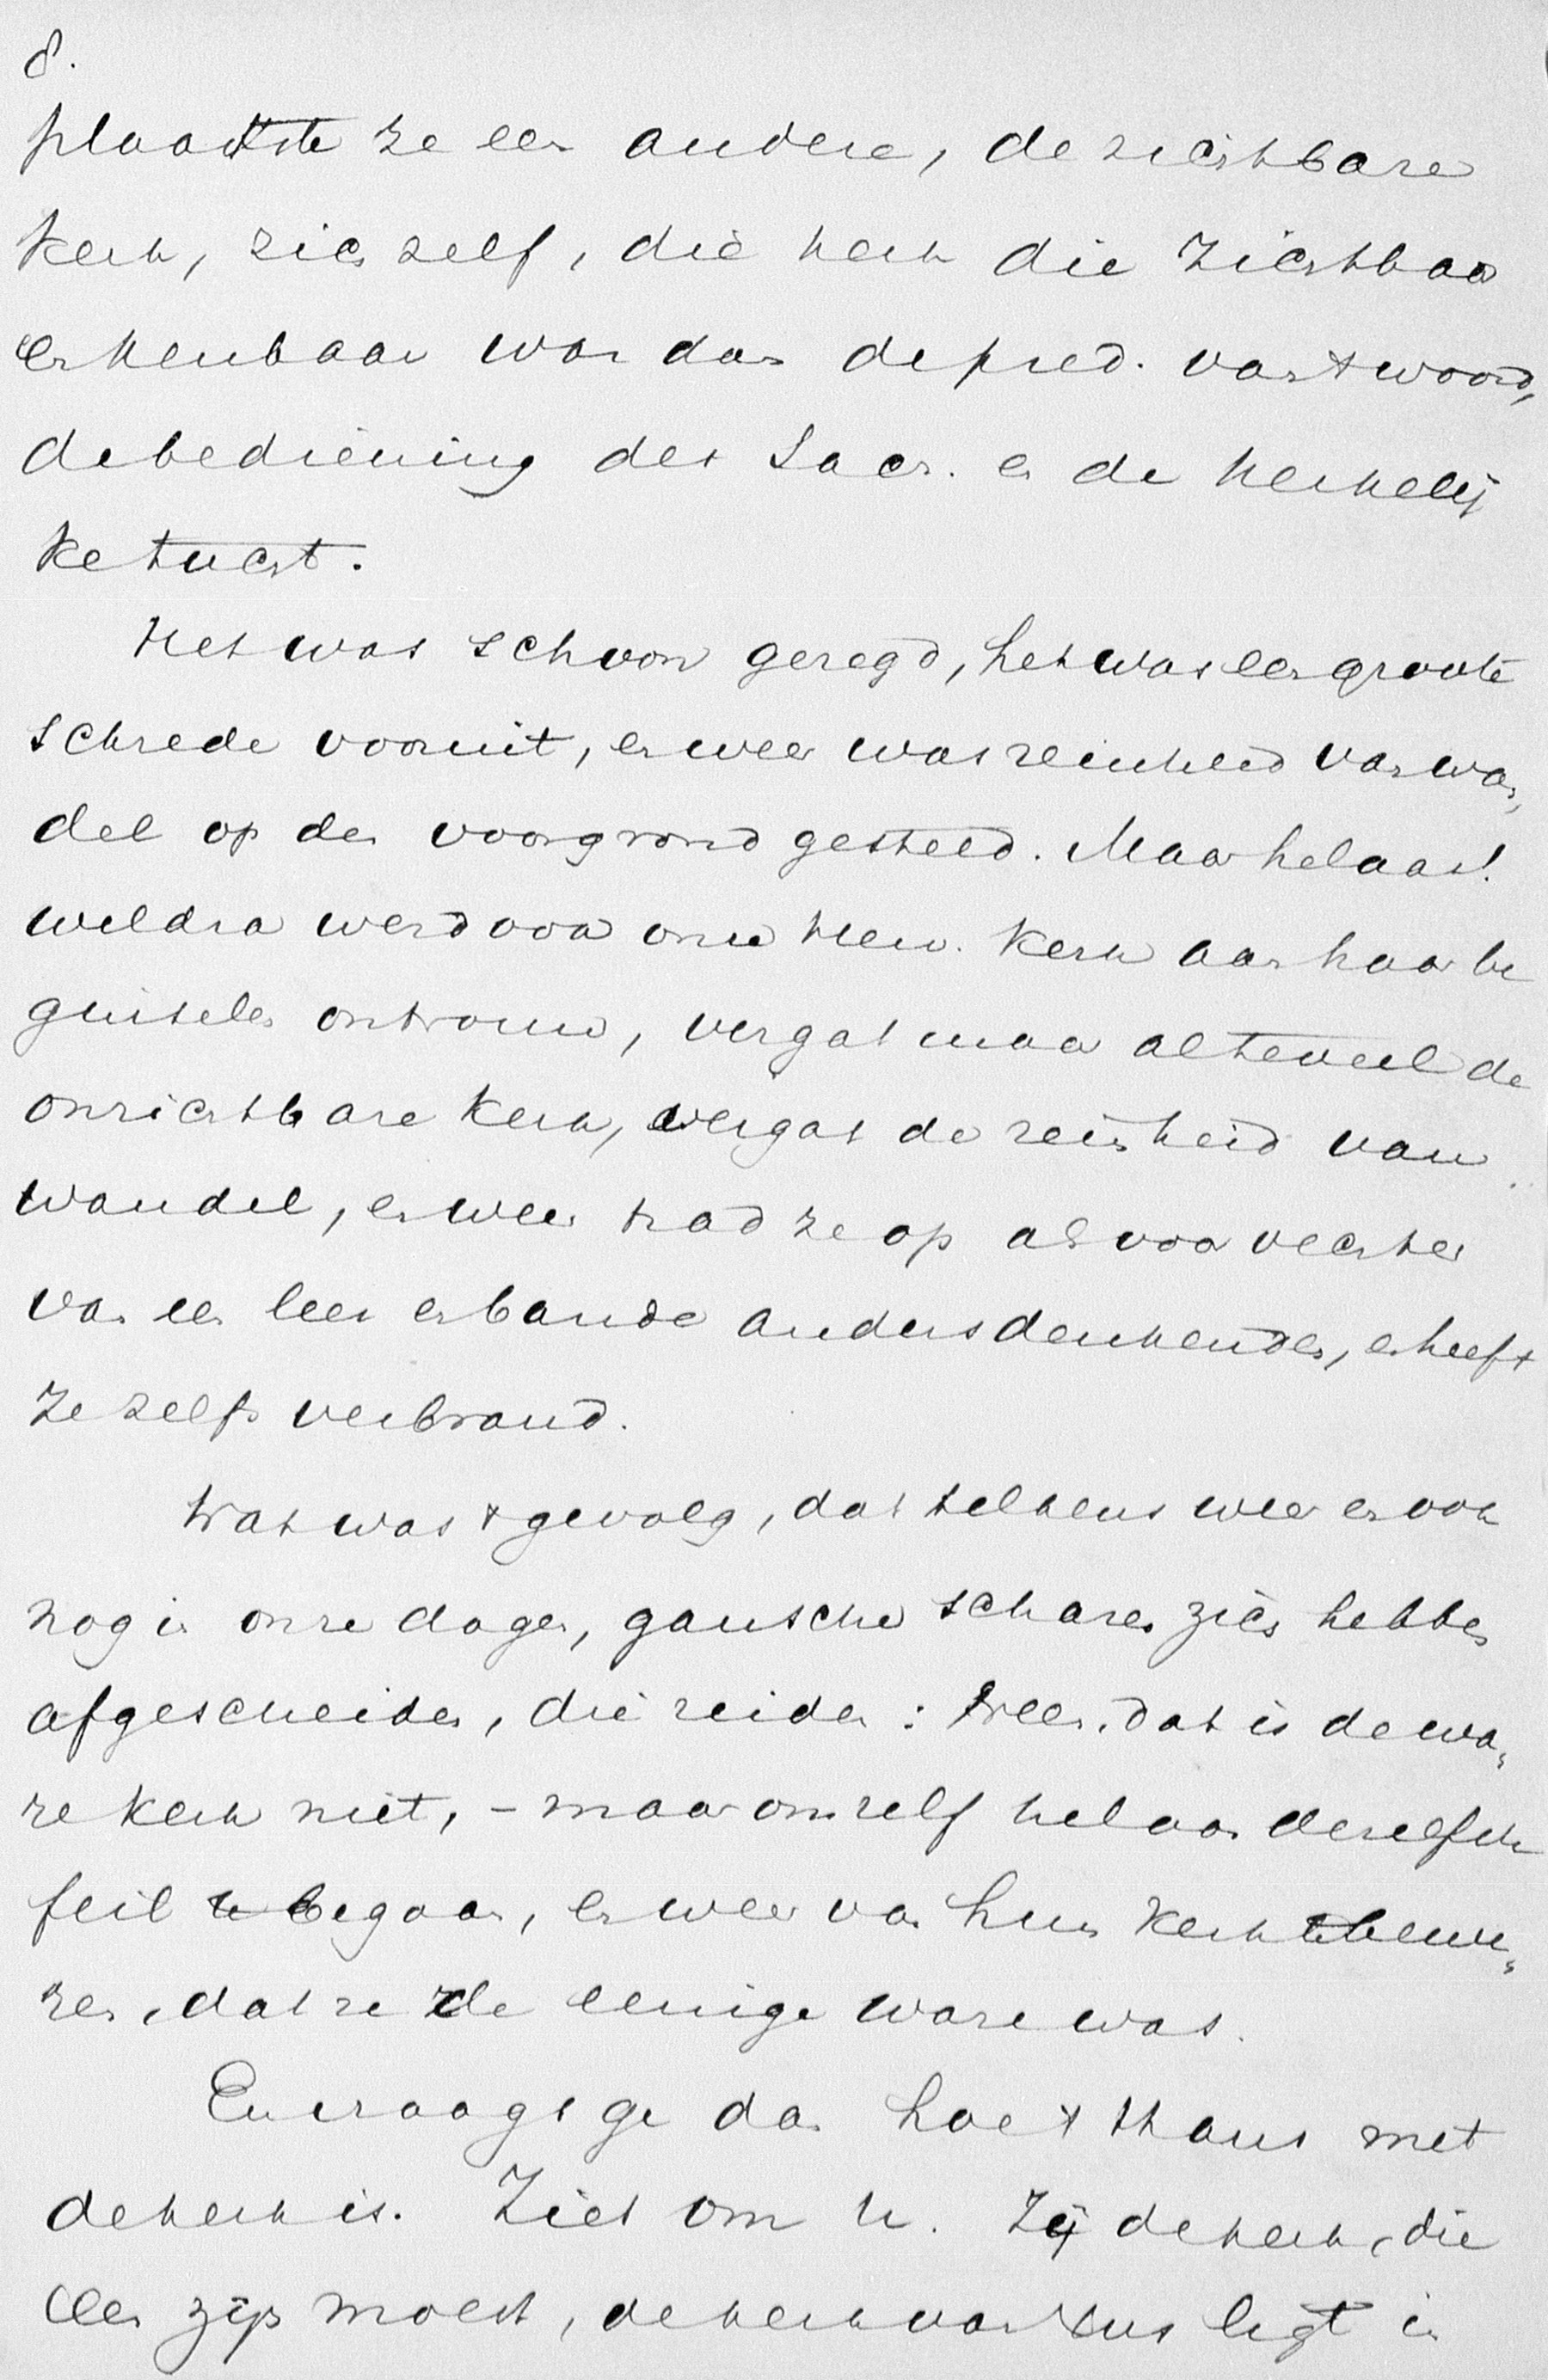 8.
plaatste ze een andere, de zichtbare
kerk, zich zelf, die kerk die zichtbaar
erkenbaar was aan de pred. van 't woord,
de bediening der Sacr. en de kerkelij
ke tucht.
Het was schoon gezegd, het was een groote
schrede vooruit, en weer was reinheid van wan„
del op den voorgrond gesteld. Maar helaas!
weldra werd ook onze Herv. Kerk aan haar be
ginselen ontrouw, vergat maar al te veel de
onzichtbare kerk, vergat de reinheid van
wandel, en weer trad ze op als voorvechter
van een leer en bande andersdenkenden, en heeft
ze zelfs verbrand.
Wat was 't gevolg, dat telkens weer en ook
nog in onze dagen, gansche scharen zich hebben
afgescheiden, die zeiden: Neen, dat is de wa„
re kerk niet, – maar om zelf helaas dezelfde
feil te begaan, en weer van hun kerk te bewij„
zen, dat ze de eenige ware was.
En vraagt ge dan hoe 't thans met
de kerk is. Ziet om U. Zij de kerk, die
één zijn moest, de kerk van Xtus ligt in